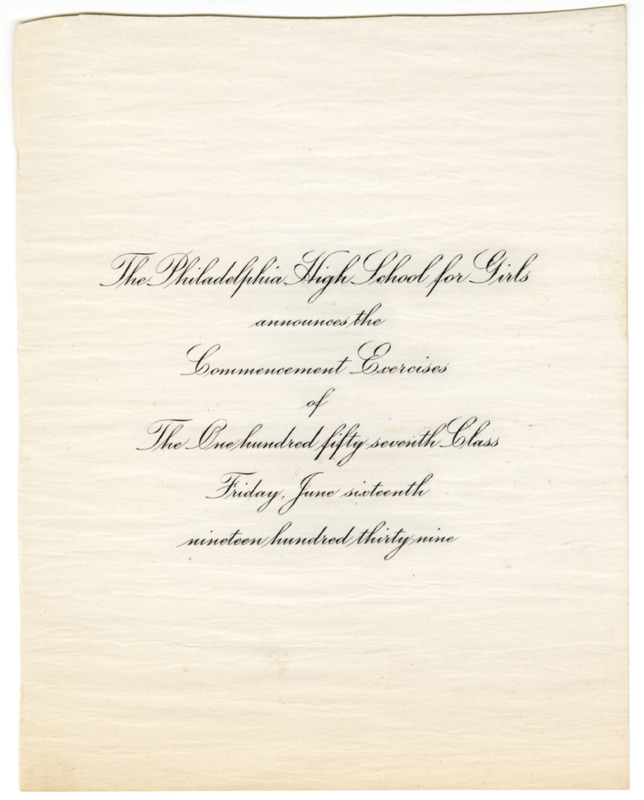 The Philadelphia High School for Girls
announces the
Commencement Exercises
of
The One hundred fifty seventh Class
Friday, June sixteenth
nineteen hundred thirty nine